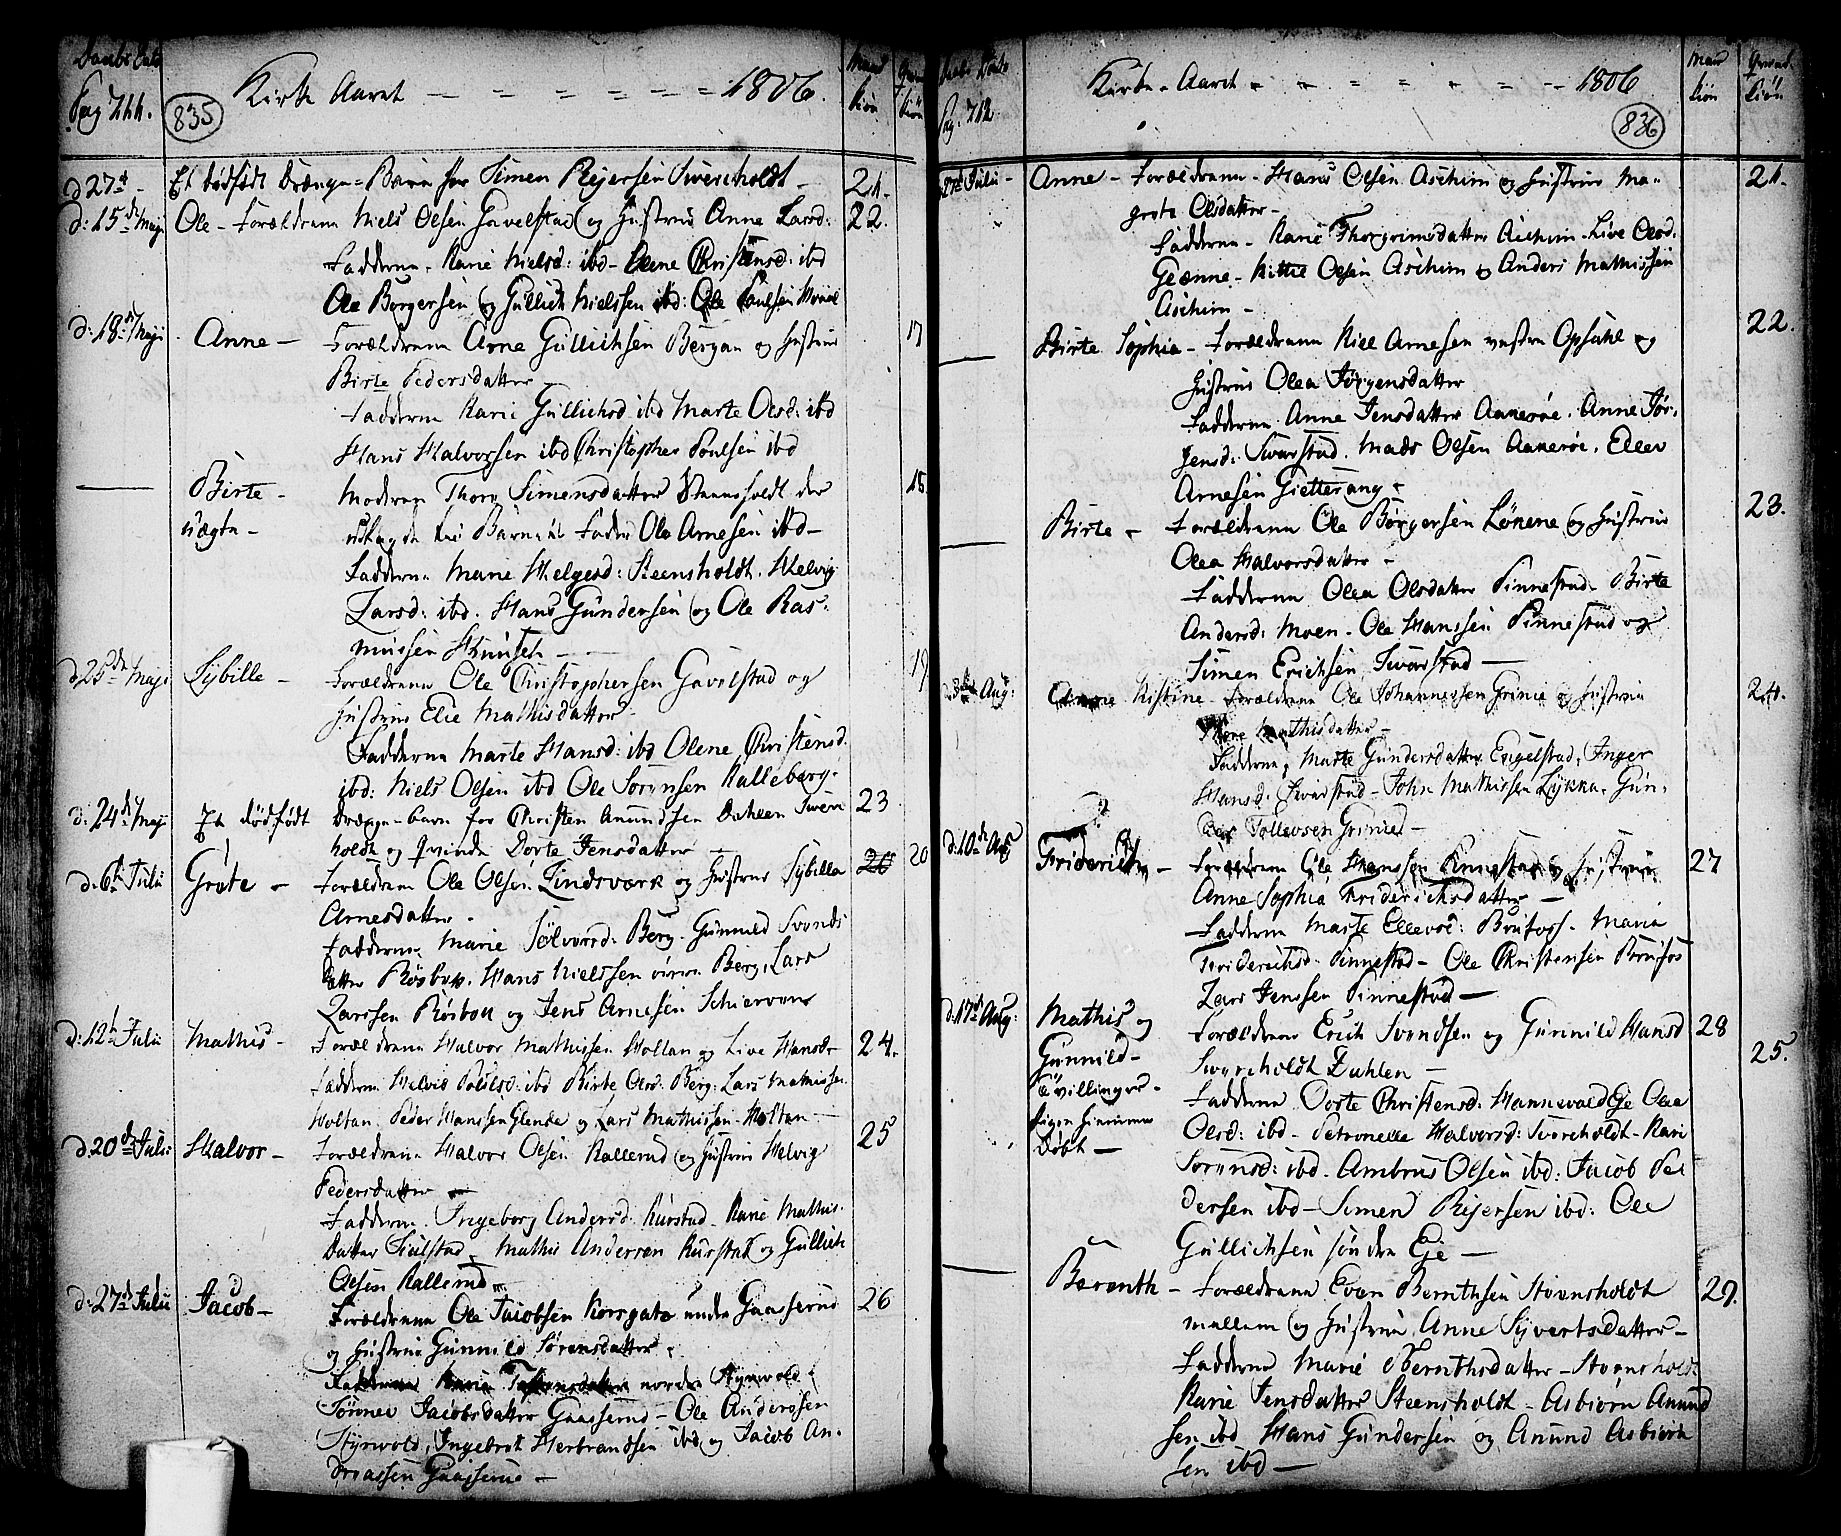 Daabs Dato
Pag 711.
835
Kirke Aaret - - - - - - 1806.
Mand
kiön
Qvind
kiön
d 27de - Et dödfödt Drænge-Barn for Simen Rejersen Sverholdt - 21.
d: 15de Maji Ole - Forældrene Niels Olsen Gavelstad og Hustrue Anne Larsd: 22.
Fadderne. Karie Nielsd: ibd - Olene Christensd: ibd
Ole Borgersen og Gullich Nielssen ibd: Ole Poulsen
d: 18de Maji Anne - Forældrene Arne Gullichsen Bergan og Hustrue 17
Birte Pedersdatter -
Fadderne Karie Gullichsd ibd Marte Olsd: ibd
Hans Halvorsen ibd Christopher Poulsen ibd
Birte - Moderen Thore Simensdatter Steensholdt der 18.
uægte - udlagde til Barnets Fader Ole Arnesen ibd -
Fadderne Marie Helgesd: Steensholdt. Helvig
Larsd: ibd. Hans Gundersen og Ole Ras-
mussen
d 25de Maji Sybille - Forældrene Ole Christophersen Gavelstad og 19
Hustrue Elie Mathisdatter -
Fadderne Marte Hansd: ibd Olene Christensd.
ibd: Niels Olsen ibd Ole Sörensen Kalleberg.
d: 24de Maji Et dödfödt Drænge-barn for Christen Anundsen Dahlen Sver 23
holdt og Qvinde Dorte Jensdatter -
d: 6te Julii Grete - Forældrene Ole Olsen Lindsværk og Hustrue Sybille 20 20
Arnesdatter -
Fadderne Marie Sölversd: Berg. Gunnild Svends
datter Rösbye. Hans Nielssen övre Berg, Lars
Larssen og Jens Arnesen Schierven
d: 12te Julii Mathis - Forældrene Halvor Mathissen Holtan og Live Hansdr 24.
Fadderne Helvig Poulsd: ibd Birte Olsd: Berg: Lars Mathissen
Holtan. Peder Hanssen Glende og Lars Mathissen Holtan -
d. 20de Julii Halvor - Forældrene Halvor Olsen Kallerud og Hustrue Helvig 25
Pedersdatter -
Fadderne. Ingeborg Andersd. Rurstad. Karie Mathis-
datter - Mathis Andersen Rurstad og Gullich
Olsen Kallerud -
d: 27de Julii Jacob - Forældrene Ole Jacobsen Korsgate under Gaasserud 26
og Hustrue Gunnild Sörensdatter -
Fadderne Karie nordre Styrvold
Jacobsdatter Gaasserud - Ole Anderssen
Styrvold, Ingebret Herbrandsen ibd og Jacob An-
dreassen Gaasserud -
Daabs Dato
Pag. 712
Kirke - Aaret - - - - - - 1806
836
Mand
kiön
Qvind
kiön
27de Julii - Anne - Forældrene - Hans Olsen Aschim og Hustrue Ma- 21.
grete Olsdatter -
Fadderne - Karie Thorgrimsdatter Aschim - Live Olsd.
- Kittil Olsen Aschim og Anders Mathissen
Aschim -
Birte Sophia - Forældrene Kiel Arnesen vestre Opsahl og 22.
Hustrue Olea Jörgensdatter
Fadderne. Anne Jensdatter Aaneröe. Anne Jör-
gensd: Svarstad. Mads Olsen Aaneröe. Ellev
Arnesen Gietterang -
Birte - Forældrene Ole Börgersen Lönene og Hustrue 23.
Olea Halvorsdatter -
Fadderne Olea Olsdatter Pinnestad. Birte
Andersd: Moen - Ole Hanssen Pinnestad og
Simen Erichsen Svarstad -
Aug: Anne Kistine - Forældrene Ole Johannessen Grinie og Hustrue 24.
Mathisdatter -
Fadderne. Marte Gundersdatter Engelstad, Inger
Hansd: Svarstad - John Mathissen Lykka. Gun-
Tollevsen Grinie -
d: 10de Aug Friderich - Forældrene Ole Hanssen Pinnestad og Hustrue 27
Anne Sophia Friderichsdatter -
Fadderne Marte Ellevsd: Brufoss - Maria
Friderichsd: Pinnestad - Ole Christensen Brufos
Lars Jenssen Pinnestad -
d. 17de Aug: Mathis og Forældrene Erich Svendsen og Gunnild Hansd 28
Gunnild - Sverholdt Dahlen - 25.
tvillinger - Fadderne Dorte Christensd: Hannevold Eje Olea
Hjemme Olsd: ibd - Petronelle Halvorsd: Sverholdt - Kari
Döbt - Sörensd: ibd - Ambrus Olsen ibd: Jacob Pe-
dersen ibd - Simen Rejersen ibd: Ole
Gullichsen söndre Eje -
Berenth - Forældrene Even Bernthsen Steensholdt 29.
mellem og Hustrue Anne Syvertsdatter -
Fadderne Marie Bernthsdatter - Steensholdt
Karie Jensdatter Steensholdt - Asbiörn Anund
sen ibd Hans Gundersen og Anund Asbiörn
sen ibd -